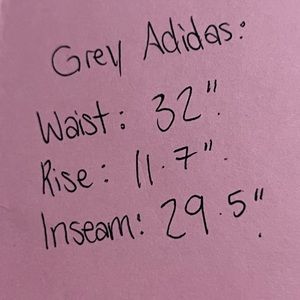 Grey Adidas:
Waist: 32".
Rise: 11.7".
Inseam: 29.5".